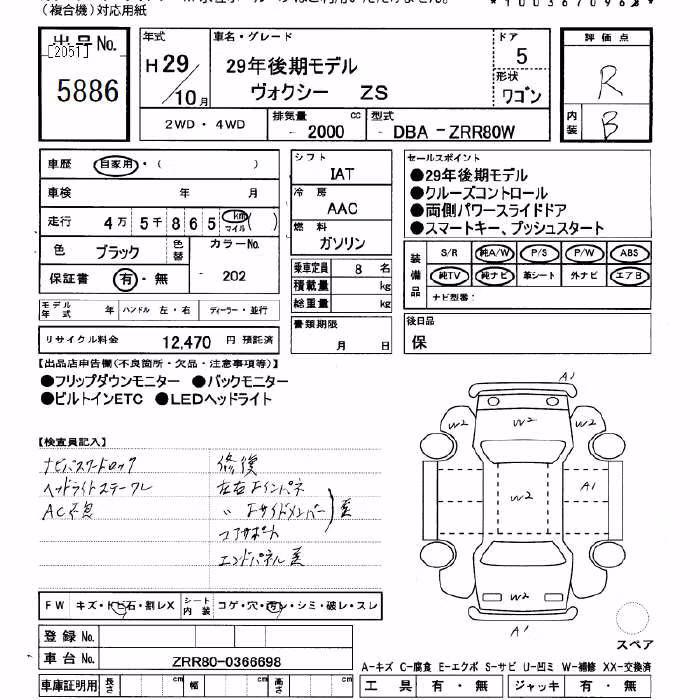 (複合機)対応用紙
*100367096
出品No.
[2051]
5886
年式
H 29
10月
車名・グレード
29年後期モデル
ヴォクシー ZS
ドア
5
形状
ワゴン
2WD・4WD
排気量 cc
- 2000
型式
- DBA -ZRR80W
評価点
R
内装
B
車歴 自家用・( )
車検 年 月
走行 4万 5千 865 km マイル ( )
色 ブラック 色替
カラーNo.
- 202
保証書 有・無
モデル年式 年 ハンドル 左・右 ディーラー・並行
リサイクル料金 12,470 円 預託済
シフト
IAT
冷房
AAC
燃料
ガソリン
乗車定員 8 名
積載量 kg
総重量 kg
書類期限
月 日
セールスポイント
●29年後期モデル
●クルーズコントロール
●両側パワースライドドア
●スマートキー、プッシュスタート
装備品
S/R 純A/W P/S P/W ABS
純TV 純ナビ 革シート 外ナビ エアB
ナビ型番:
後日品
保
【出品店申告欄(不良箇所・欠品・注意事項等)】
●フリップダウンモニター ●バックモニター
●ビルトインETC ●LEDヘッドライト
【検査員記入】
ナビパスワードロック
ヘッドライトステーワレ
AC不良
修復
左右Fインパネ
〃 Fサイドメンバー
コアサポート
エンドパネル
A1
W2 W2 W2
W2
A1
W2
A1
スペア
FW キズ・トビ石・割レX
シート内装 コゲ・穴・汚レ・シミ・破レ・スレ
登録No.
車台No. ZRR80-0366698
車庫証明用 長さ cm 幅 cm 高さ cm
A-キズ C-腐食 E-エクボ S-サビ U-凹ミ W-補修 XX-交換済
工具 有・無 ジャッキ 有・無